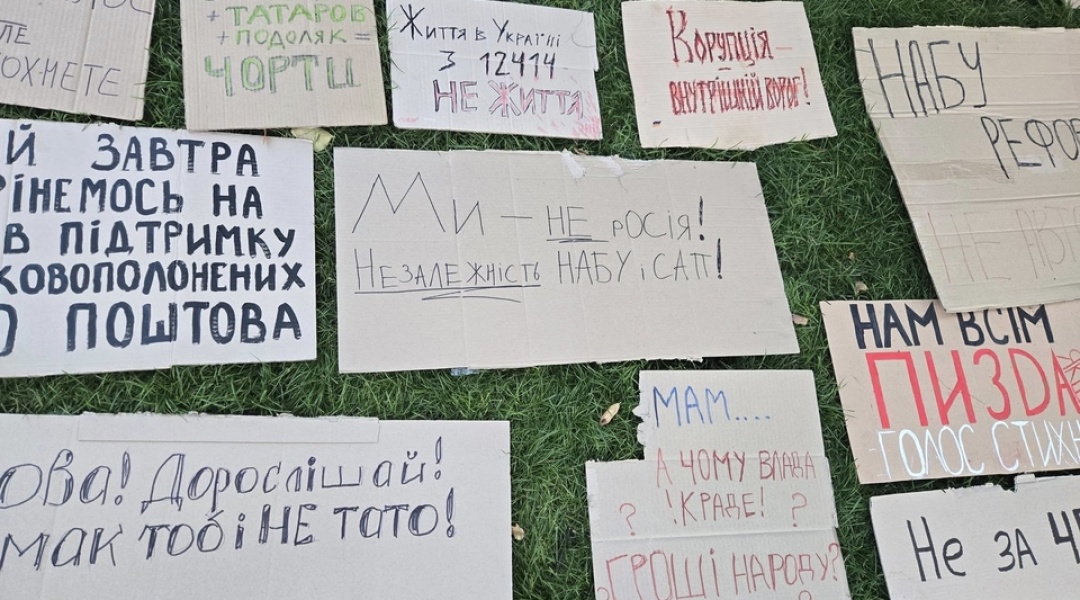 + ТАТАРОВ
+ ПОДОЛЯК =
ЧОРТИ
Життя в Україні
З 12414
НЕ ЖИТТЯ
Корупція —
ВНУТРІШНІЙ ВОРОГ!
НАБУ
РЕФО
НЕ АВТО
Й ЗАВТРА
РІНЕМОСЬ НА
В ПІДТРИМКУ
КОВОПОЛОНЕНИХ
ПОШТОВА
Ми — НЕ росія!
НЕЗАЛЕЖНІСТЬ НАБУ і САП!
НАМ ВСІМ
ПИЗДА
ГОЛОС СТИХН
ОВА! Дорослішай!
мак тобі НЕ тато!
МАМ....
А ЧОМУ ВЛАДА
? КРАДЕ! ?
ГРОШІ НАРОДУ?
Не за